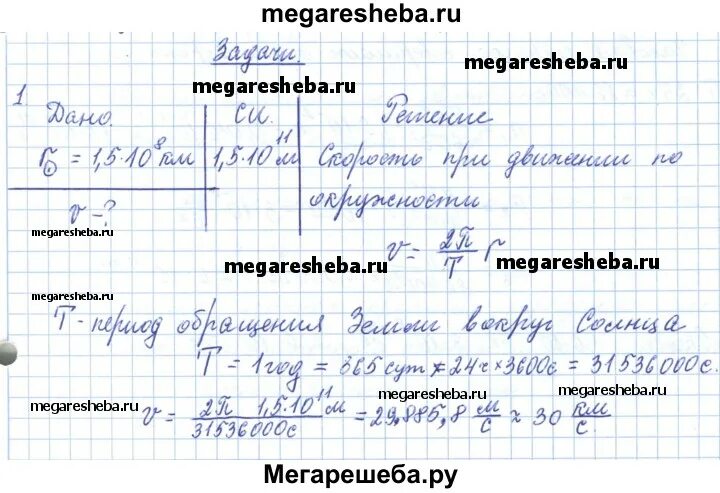 megaresheba.ru
Задачи.
megaresheba.ru
megaresheba.ru
1.
Дано. СИ. Решение
megaresheba.ru
r = 1,5·10⁸ км 1,5·10¹¹ м Скорость при движении по
окружности
v - ?
megaresheba.ru
v = 2π/T r
megaresheba.ru
megaresheba.ru
megaresheba.ru
T - период обращения Земли вокруг Солнца
T = 1 год = 365 сут × 24 ч × 3600 с = 31536000 с.
megaresheba.ru
megaresheba.ru
megaresheba.ru
v = 2π 1,5·10¹¹ м / 31536000 с = 29.885,8 м/с ≈ 30 км/с.
Мегарешеба.ру